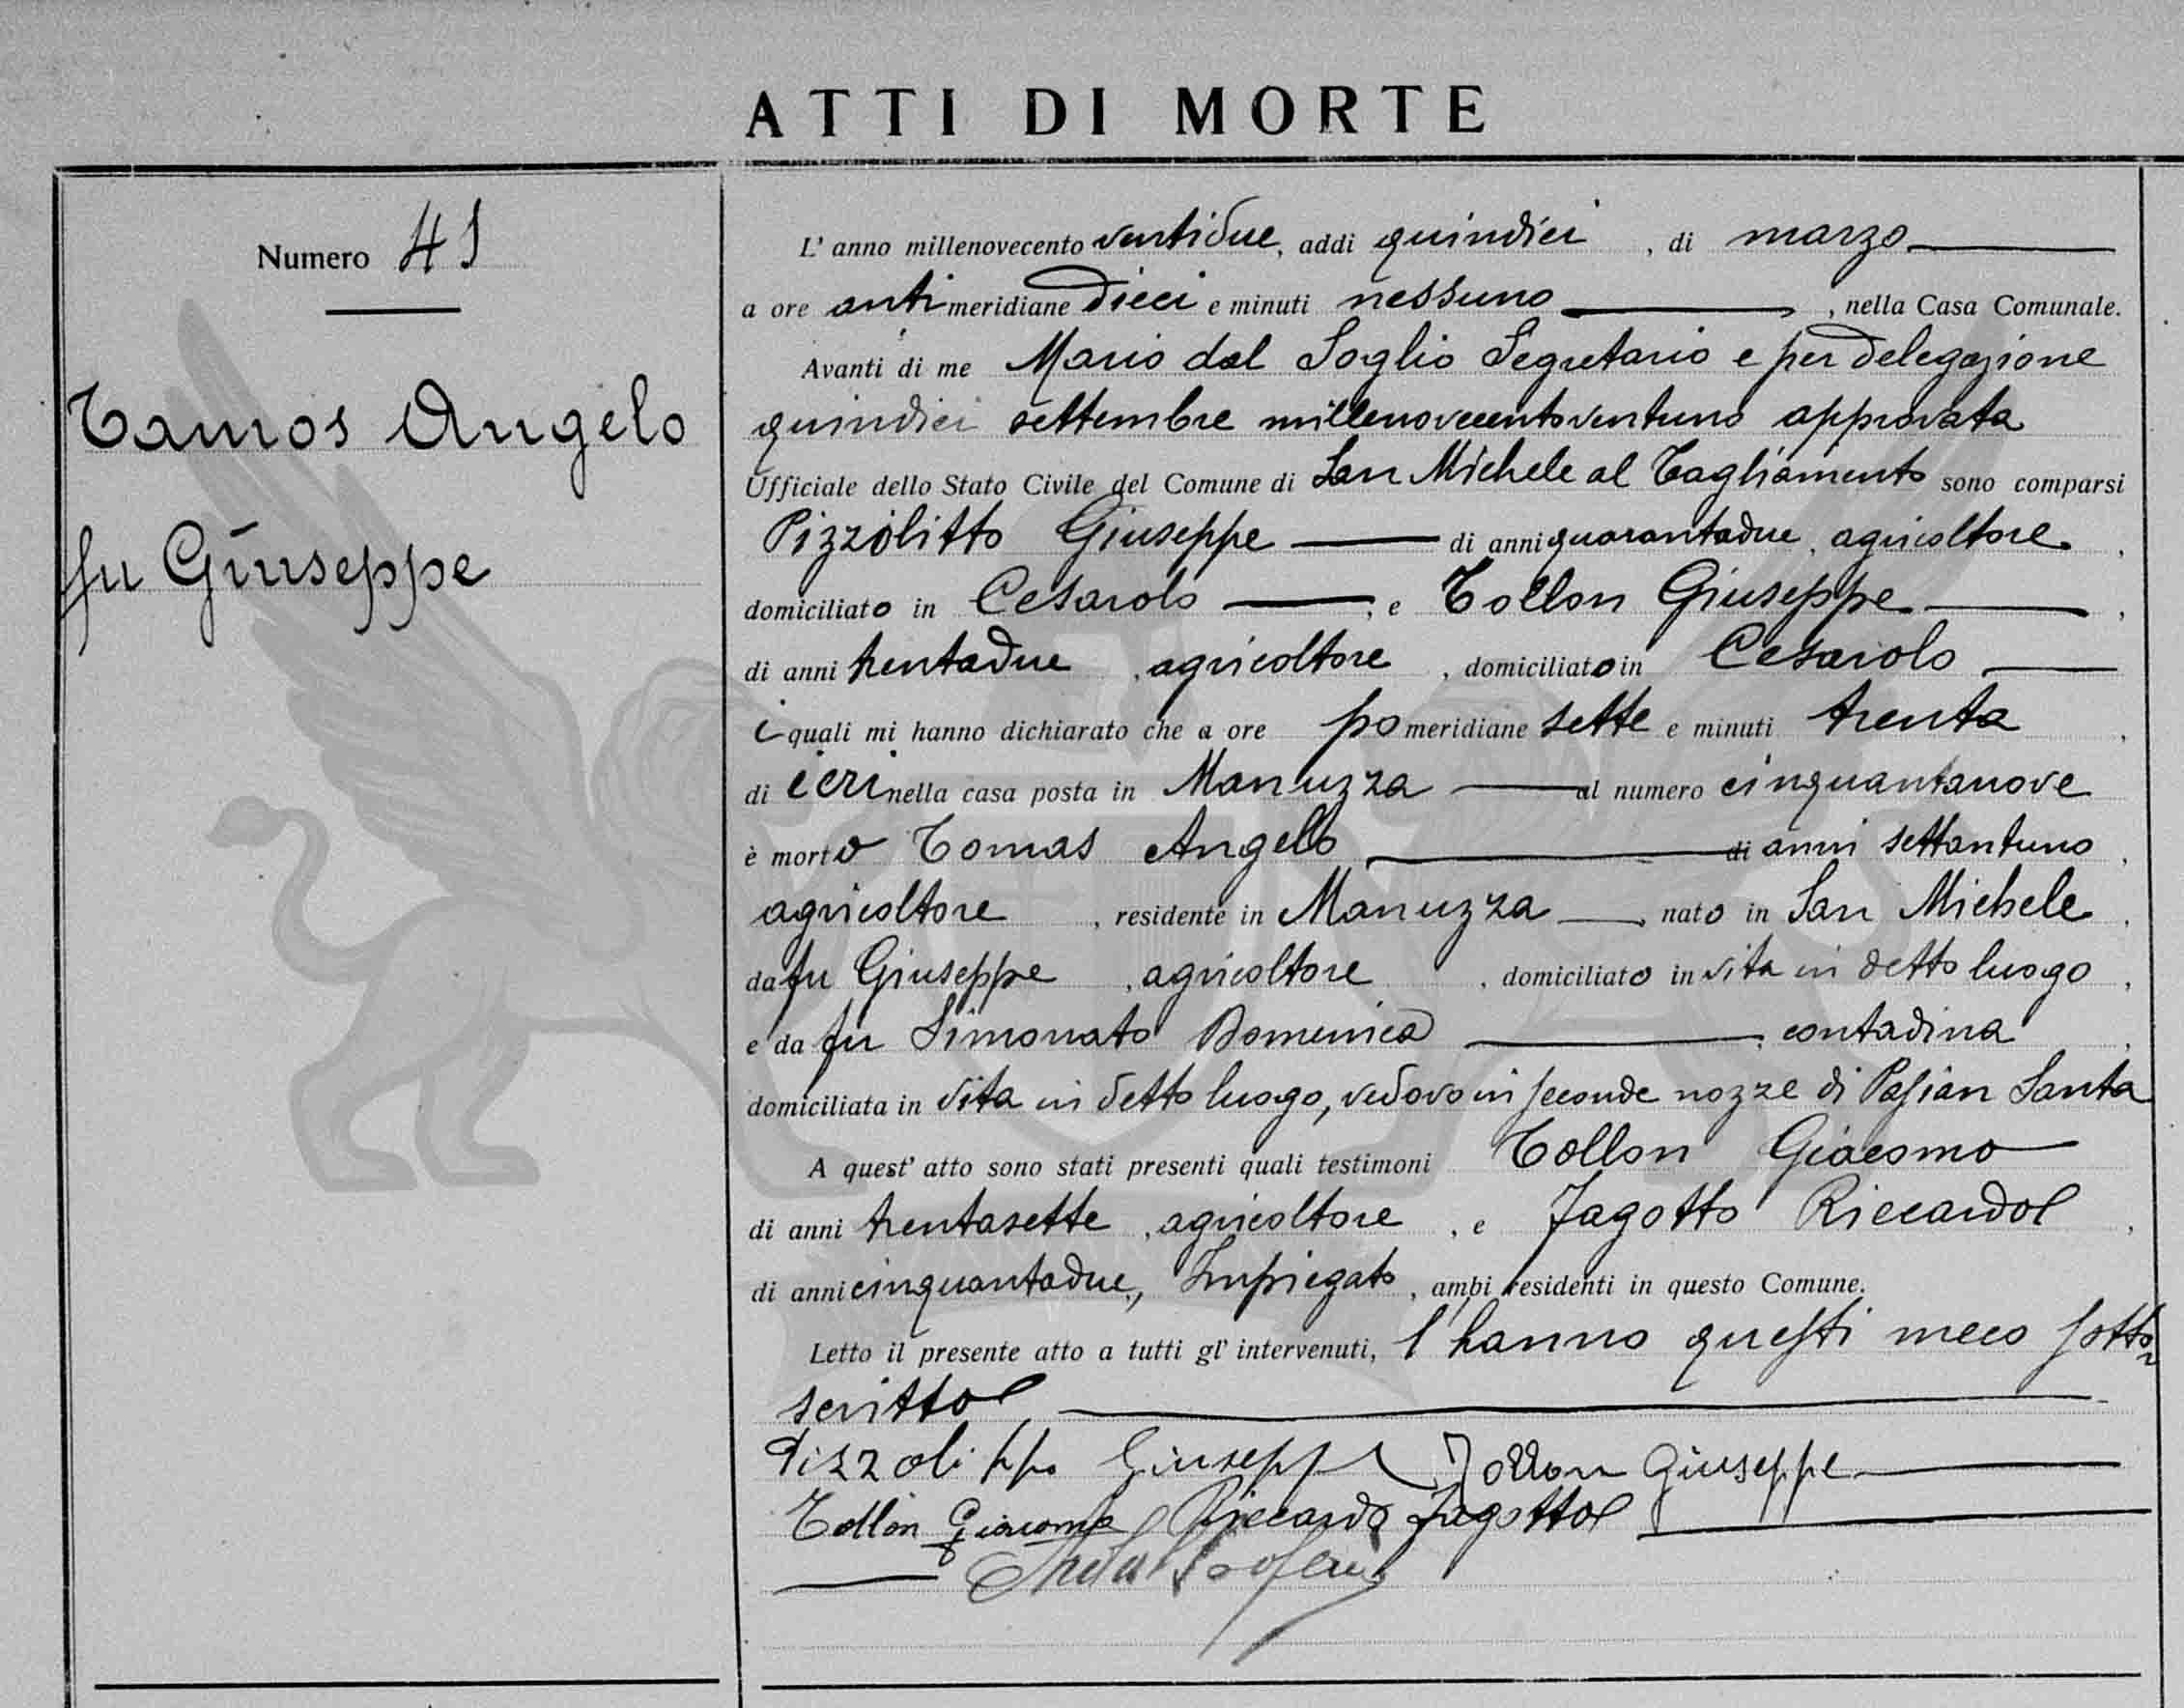 ATTI DI MORTE
Numero 41
Tamos Angelo
fu Giuseppe
L' anno millenovecento ventidue, addi quindici, di marzo
a ore antimeridiane dieci e minuti nessuno, nella Casa Comunale.
Avanti di me Mario dal Soglio Segretario e per delegazione
quindici settembre millenovecentoventuno approvata
Ufficiale dello Stato Civile del Comune di San Michele al Tagliamento sono comparsi
Pizzolitto Giuseppe di anni quarantadue, agricoltore,
domiciliato in Cesarolo, e Tollon Giuseppe,
di anni trentadue, agricoltore, domiciliato in Cesarolo
i quali mi hanno dichiarato che a ore pomeridiane sette e minuti trenta,
di ieri nella casa posta in Manuzza al numero cinquantanove
è morto Tomas Angelo di anni settantuno,
agricoltore, residente in Manuzza, nato in San Michele,
da fu Giuseppe, agricoltore, domiciliato in vita in detto luogo,
e da fu Simonato Domenica, contadina,
domiciliata in vita in detto luogo, vedovo in seconde nozze di Pasian Santa
A quest' atto sono stati presenti quali testimoni Tollon Giacomo
di anni trentasette, agricoltore, e Fagotto Riccardo,
di anni cinquantadue, Impiegato, ambi residenti in questo Comune.
Letto il presente atto a tutti gl' intervenuti, l'hanno questi meco sotto-
scritto
Pizzolitto Giuseppe Tollon Giuseppe
Tollon Giacomo Riccardo Fagotto